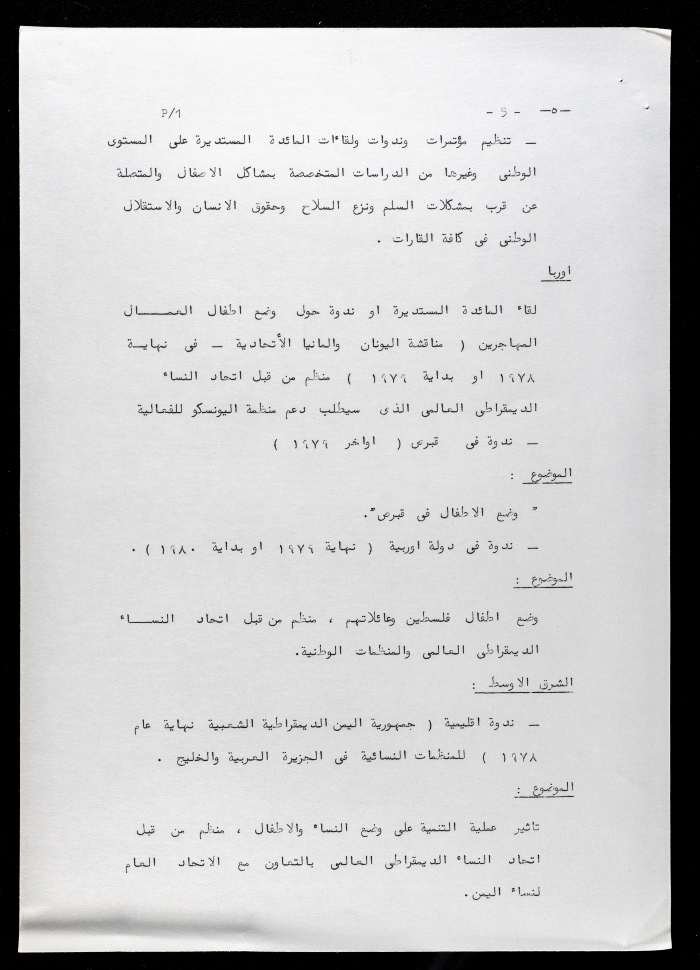 P/1 - 5 - —٥—
— تنظيم مؤتمرات وندوات ولقاءات المائدة المستديرة على المستوى
الوطنى وغيرها من الدراسات المتخصصة بمشاكل الاصفال والمتصلة
عن قرب بمشكلات السلم ونزع السلاح وحقوق الانسان والاستقلال
الوطنى فى كافة القارات .
اوربا
لقاء المائدة المستديرة او ندوة حول وضع اطفال العمـــال
المهاجرين ( مناقشة اليونان والمانيا الأتحادية — فى نهايـة
١٩٧٨ او بداية ١٩٧٩ ) منظم من قبل اتحاد النساء
الديمقراطى العالمى الذى سيطلب دعم منظمة اليونسكو للفعالية
— ندوة فى قبرص ( اواخر ١٩٧٩ )
الموضوع :
" وضع الاطفال فى قبرص".
— ندوة فى دولة اوربية ( نهاية ١٩٧٩ او بداية ١٩٨٠ ) .
الموضوع :
وضع اطفال فلسطين وعائلاتهم ، منظم من قبل اتحاد النســاء
الديمقراطى العالمى والمنظمات الوطنية.
الشرق الاوسط :
— ندوة اقليمية ( جمهورية اليمن الديمقراطية الشعبية نهاية عام
١٩٧٨ ) للمنظمات النسائية فى الجزيرة العربية والخليج .
الموضوع :
تاثير عملية التنمية على وضع النساء والاطفال ، منظم من قبل
اتحاد النساء الديمقراطى العالمى بالتعاون مع الاتحاد العام
لنساء اليمن.